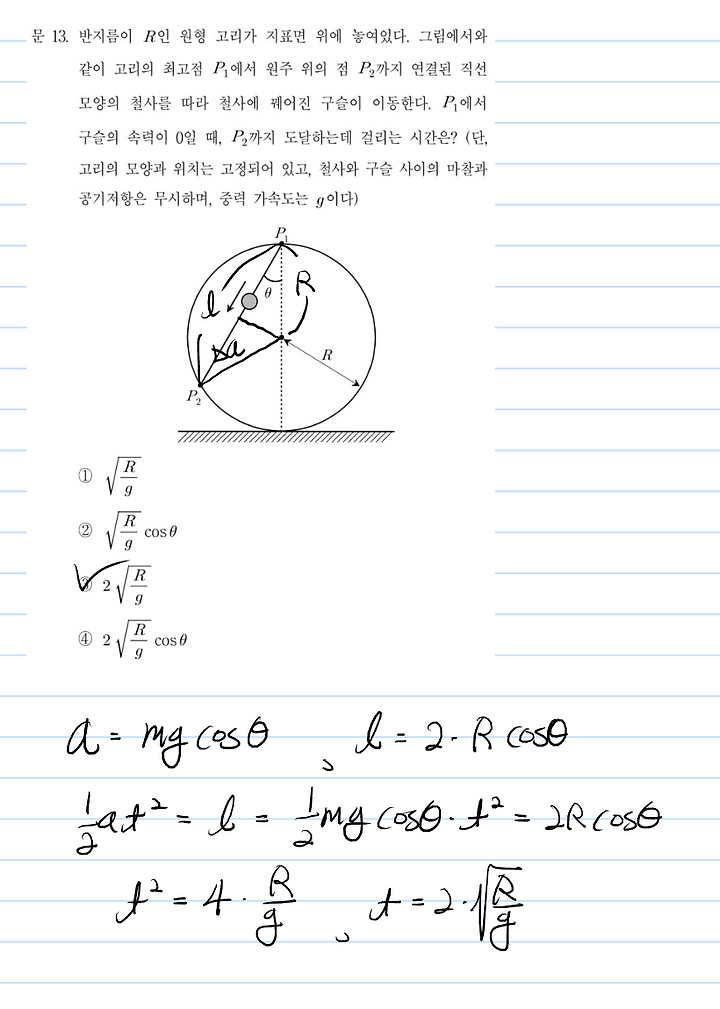 문 13. 반지름이 R인 원형 고리가 지표면 위에 놓여있다. 그림에서와
같이 고리의 최고점 P₁에서 원주 위의 점 P₂까지 연결된 직선
모양의 철사를 따라 철사에 꿰어진 구슬이 이동한다. P₁에서
구슬의 속력이 0일 때, P₂까지 도달하는데 걸리는 시간은? (단,
고리의 모양과 위치는 고정되어 있고, 철사와 구슬 사이의 마찰과
공기저항은 무시하며, 중력 가속도는 g이다)
P₁
θ
R
l
a
R
P₂
① √(R/g)
② √(R/g) cosθ
③ 2√(R/g)
④ 2√(R/g) cosθ
a = mg cosθ , l = 2· R cosθ
1/2 at² = l = 1/2 mg cosθ · t² = 2R cosθ
t² = 4 · R/g , t = 2·√(R/g)